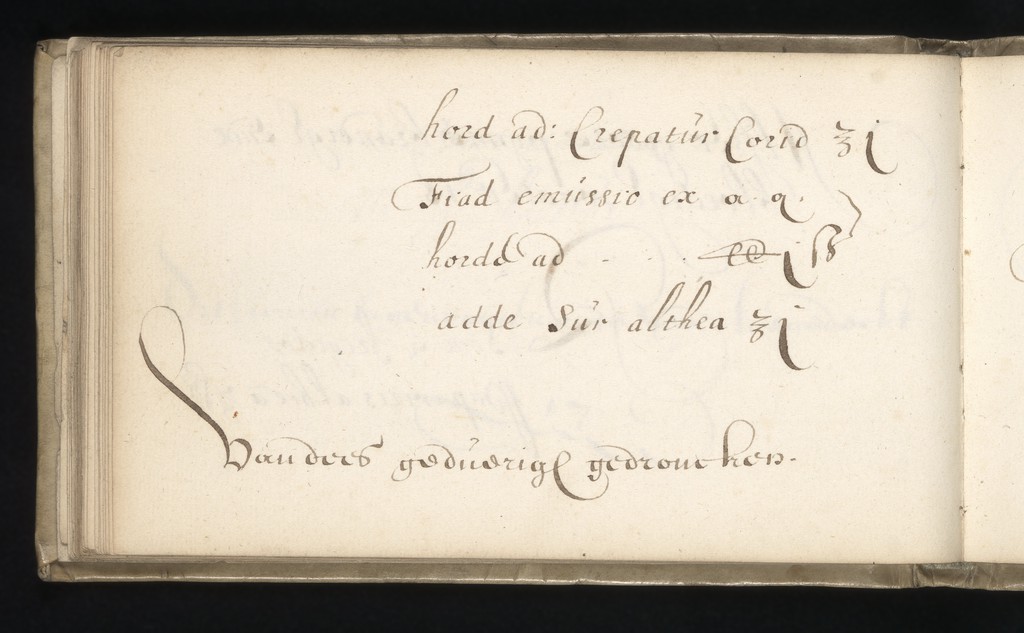 hord ad: Crepatur Corid ʒj
Fiad emussio ex a. q.
hordé ad . . . ℔ j ß
adde Sur althea ʒj
Van dees geduerigh gedroncken.